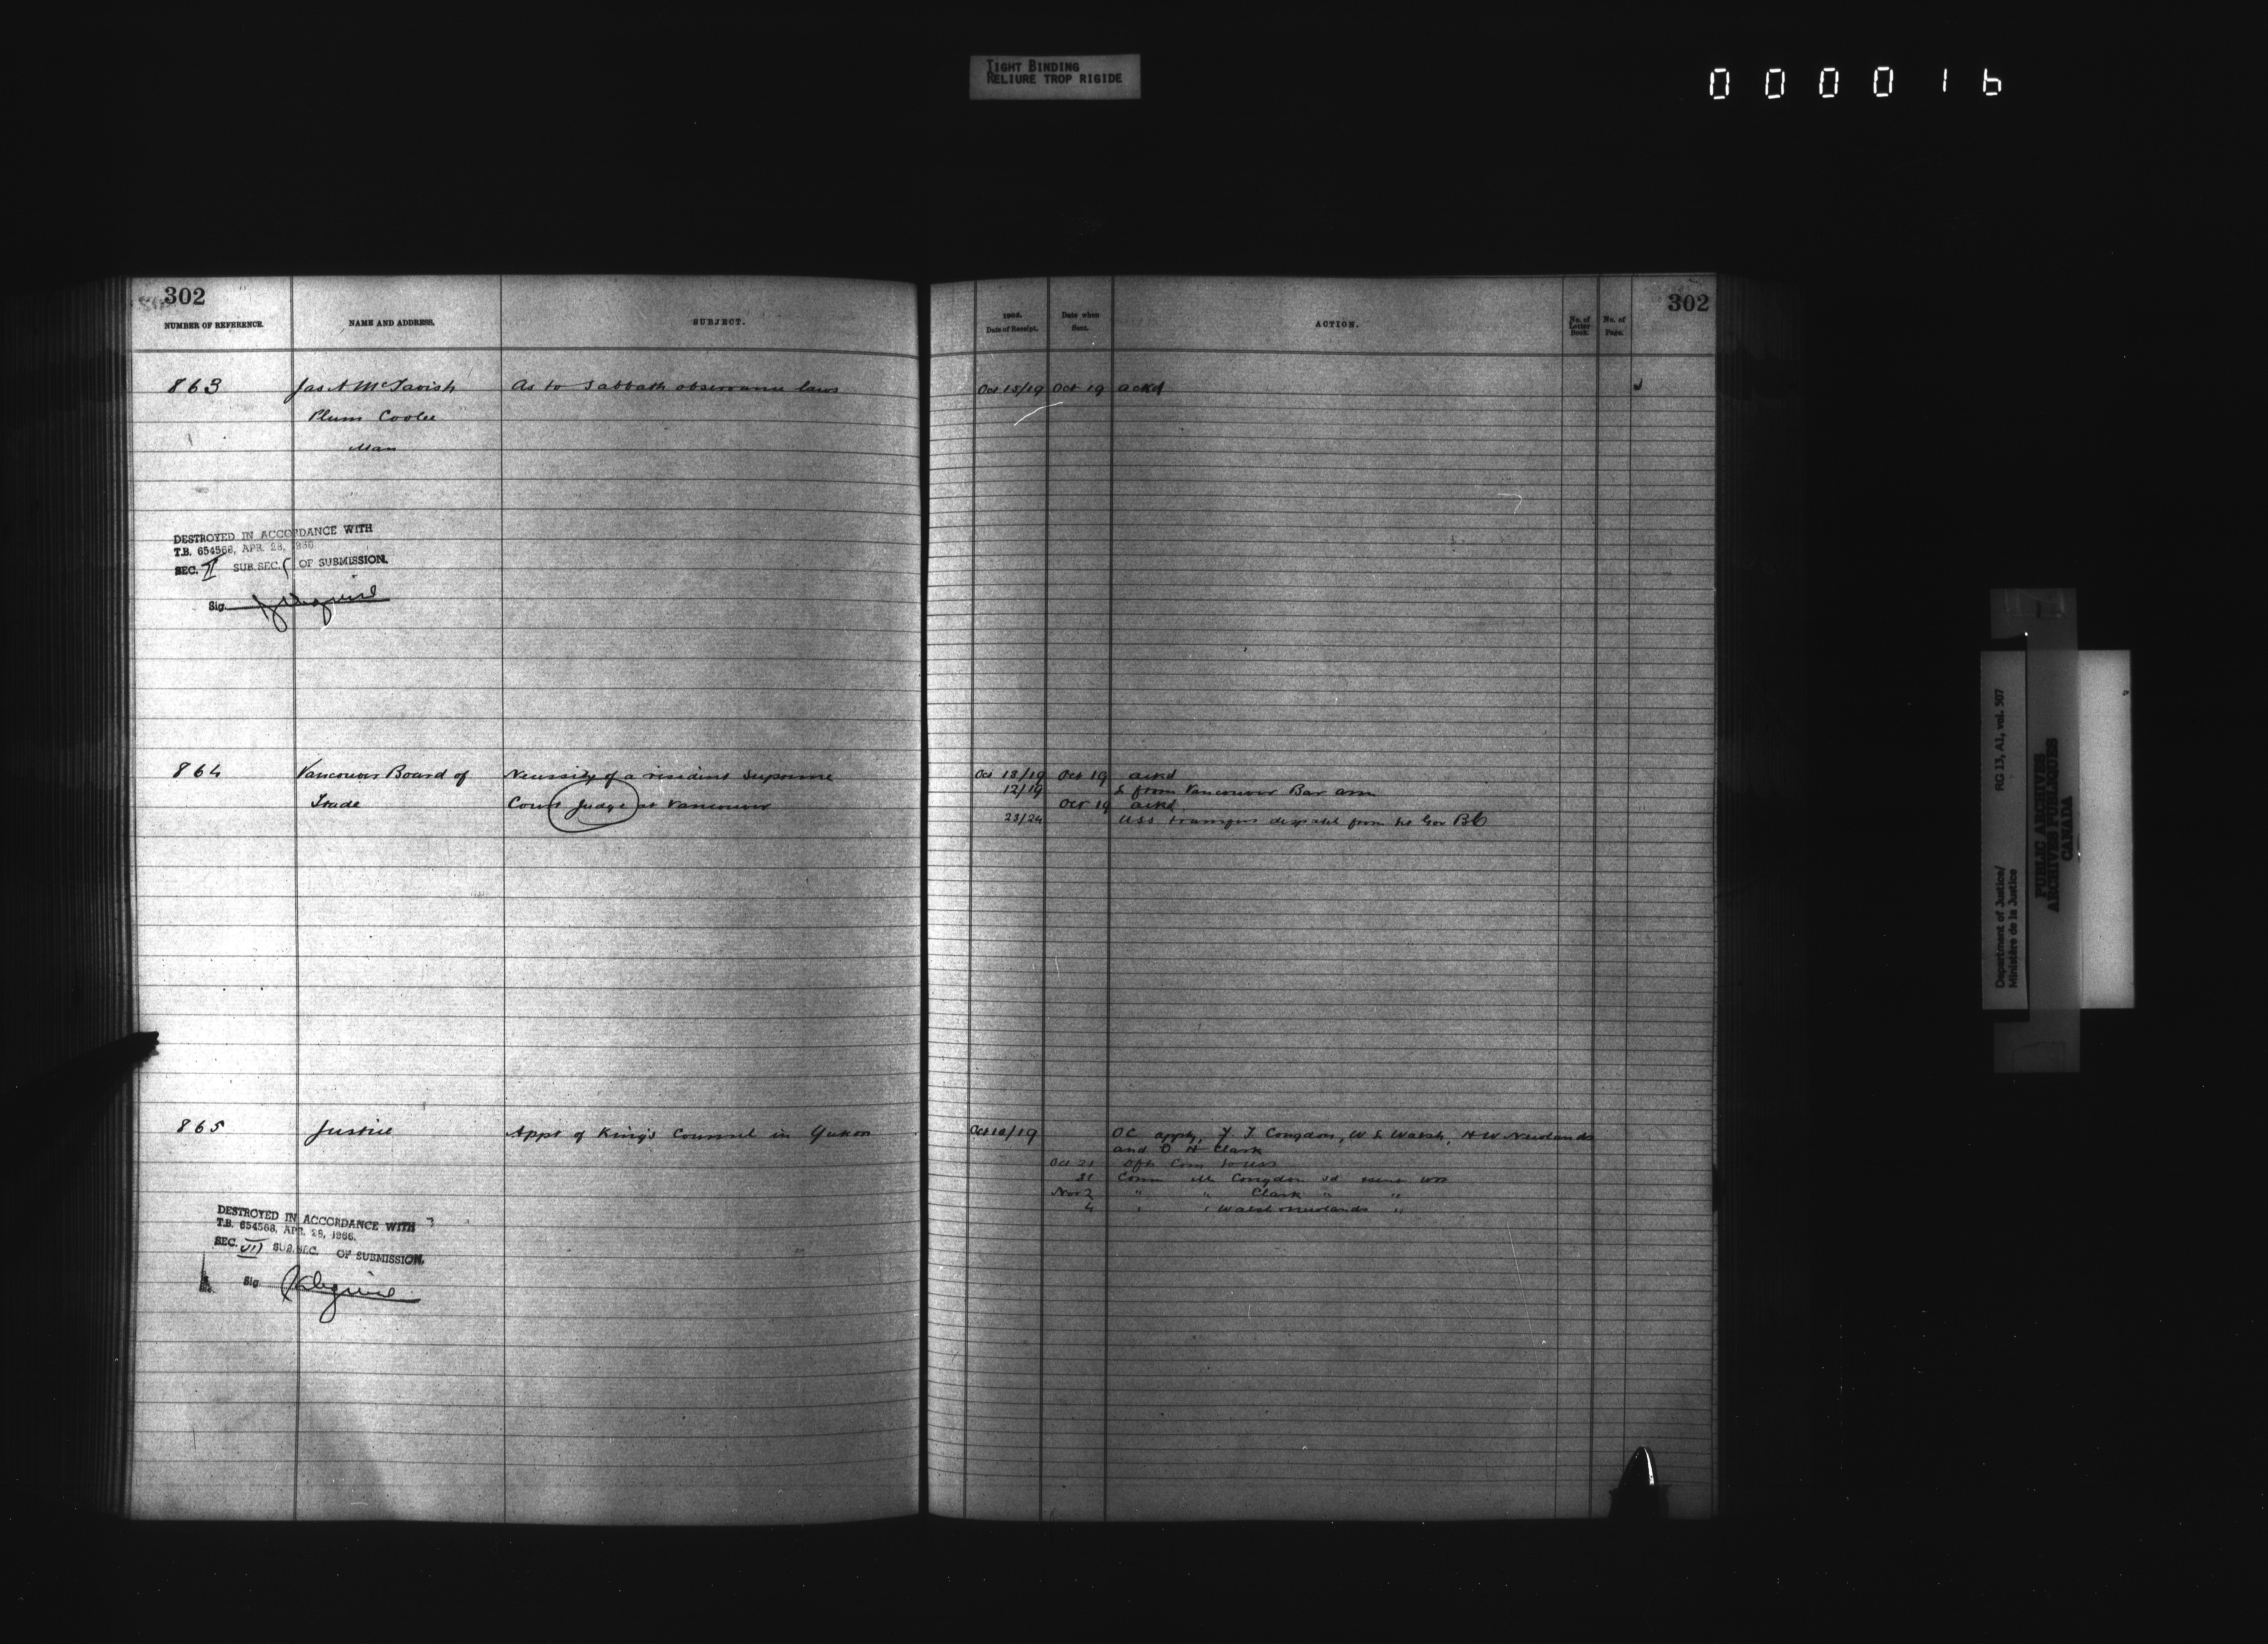 TIGHT BINDING
RELIURE TROP RIGIDE
000016
302
NUMBER OF REFERENCE.
NAME AND ADDRESS.
SUBJECT.
863
Jas A McTavish
As to Sabbath observance laws
Plum Coolee
Man
DESTROYED IN ACCORDANCE WITH
T.B. 654568, APR. 28, 1966
SEC. II SUB.SEC. OF SUBMISSION.
Sig.
864
Vancouver Board of
Necessity of a resident Supreme
Trade
Court Judge at Vancouver
865
Justice
Appt of King's Counsel in Yukon
DESTROYED IN ACCORDANCE WITH
T.B. 654568, APR. 28, 1966.
SEC. VII SUB.SEC. OF SUBMISSION.
Sig.
302
Date of Receipt.
Date when
Sent.
ACTION.
No. of
Letter
Book.
No. of
Page.
Oct 15/19 Oct 19 ackd
Oct 13/19 Oct 19 ackd
12/19 & from Vancouver Bar assn
Oct 19 ackd
23/24 USS transfers despatch from Lt Gov BC
Oct 12/19 OC appts, F T Congdon, W L Walsh, H W Newlands
and H Clark
Oct 21 Com to USS
31 Comn Congdon
Nov 2 " " Clark " "
4 " " Walsh Newlands "
Department of Justice/
Ministère de la Justice
RG 13, A1, vol. 907
PUBLIC ARCHIVES
ARCHIVES PUBLIQUES
CANADA